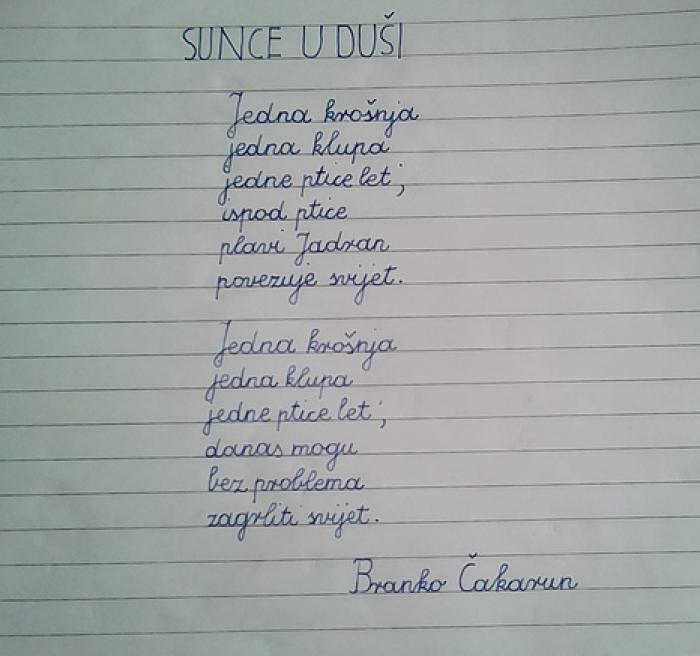 SUNCE U DUŠI
Jedna krošnja
jedna klupa
jedne ptice let;
ispod ptice
plavi Jadran
povezuje svijet.
Jedna krošnja
jedna klupa
jedne ptice let;
danas mogu
bez problema
zagrliti svijet.
Branko Čakarun